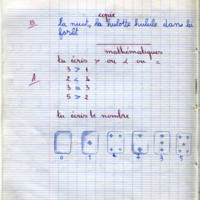 copie
B. La nuit, la hulotte hulule dans la
forêt
mathématiques
tu écris > ou < ou =
A.
3 > 1
2 < 4
3 = 3
5 > 2
tu écris le nombre
0 1 4 2 3 5